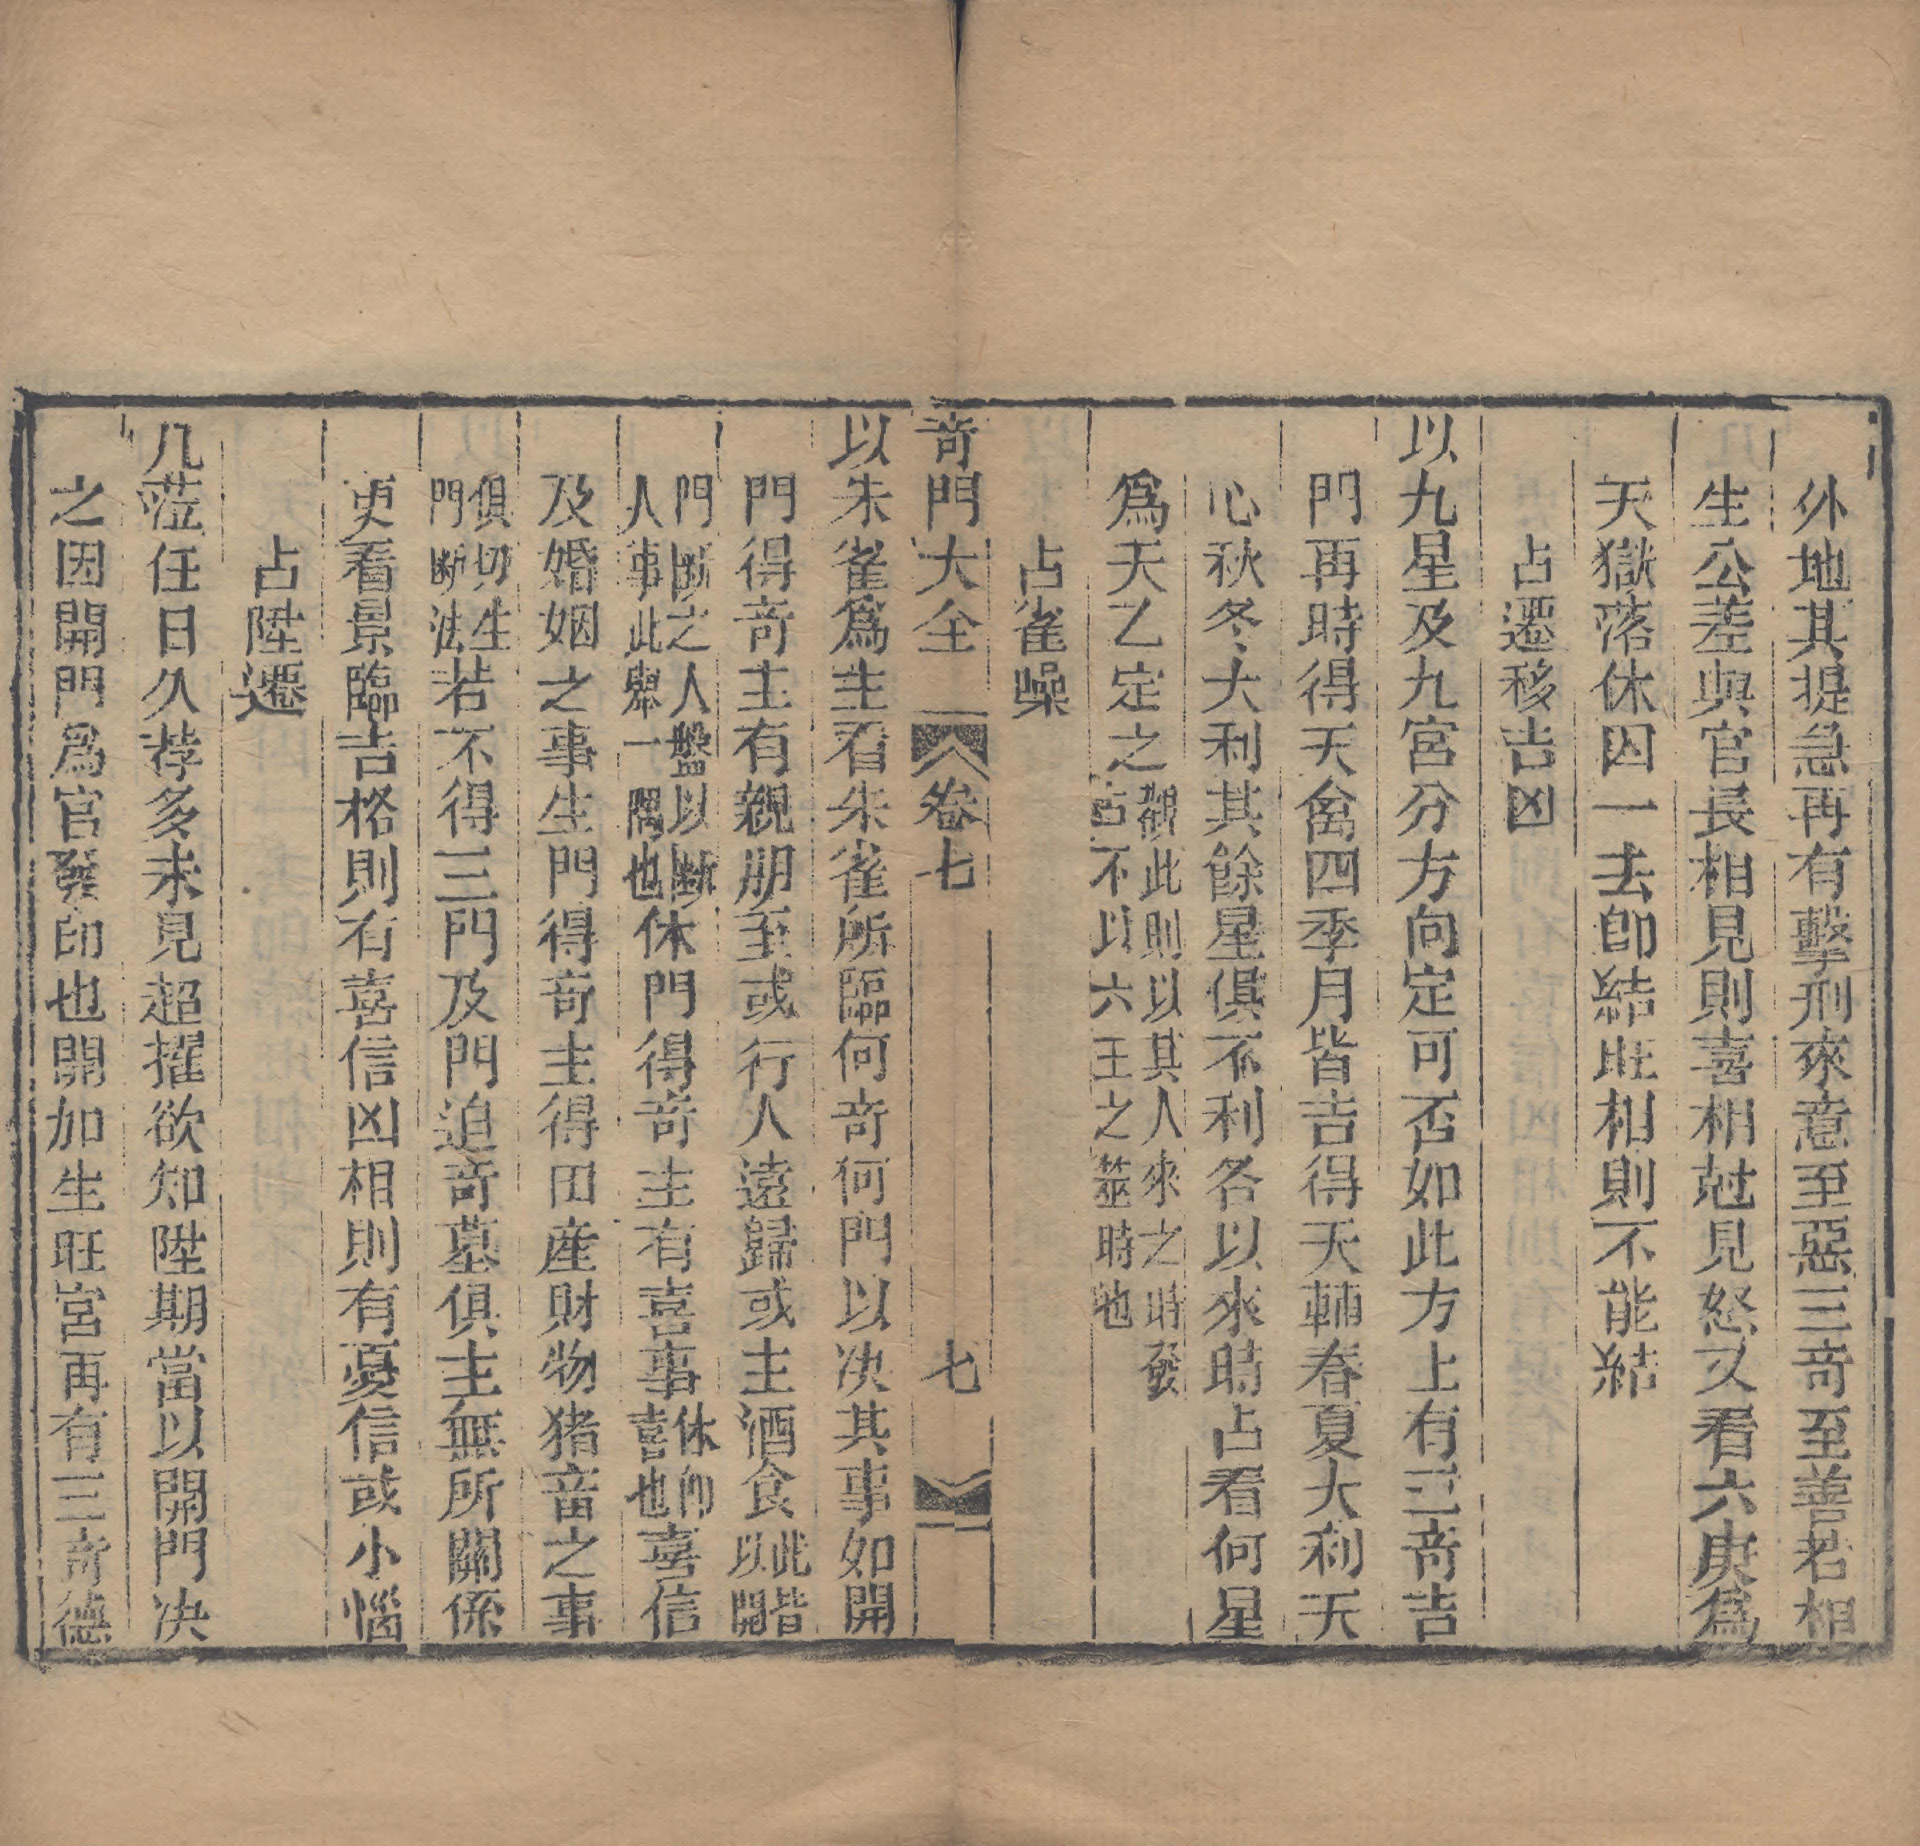 外地其提急再有擊刑來意至惡三奇至善若相
生公差與官長相見則喜相尅見怒又看六庚爲
天獄落休囚一去卽結旺相則不能結
占遷移吉凶
以九星及九宮分方向定可否如此方上有三奇吉
門再時得天禽四季月皆吉得天輔春夏大利天
心秋冬大利其餘星俱不利各以來時占看何星
爲天乙定之觀此則以其人來之時發占不以六壬之筮時也
占雀噪
奇門大全 卷七 七
以朱雀爲主看朱雀所臨何奇何門以决其事如開
門得奇主有親朋至或行人遠歸或主酒食此皆以開
門斷之人盤以斷人事此舉一隅也休門得奇主有喜事休卽喜也喜信
及婚姻之事生門得奇主得田産財物猪畜之事
俱切生門斷法若不得三門及門迫奇墓俱主無所關係
更看景臨吉格則有喜信凶相則有憂信或小惱
占陞遷
凡蒞任日久荐多未見超擢欲知陞期當以開門决
之因開門爲官發印也開加生旺宮再有三奇德